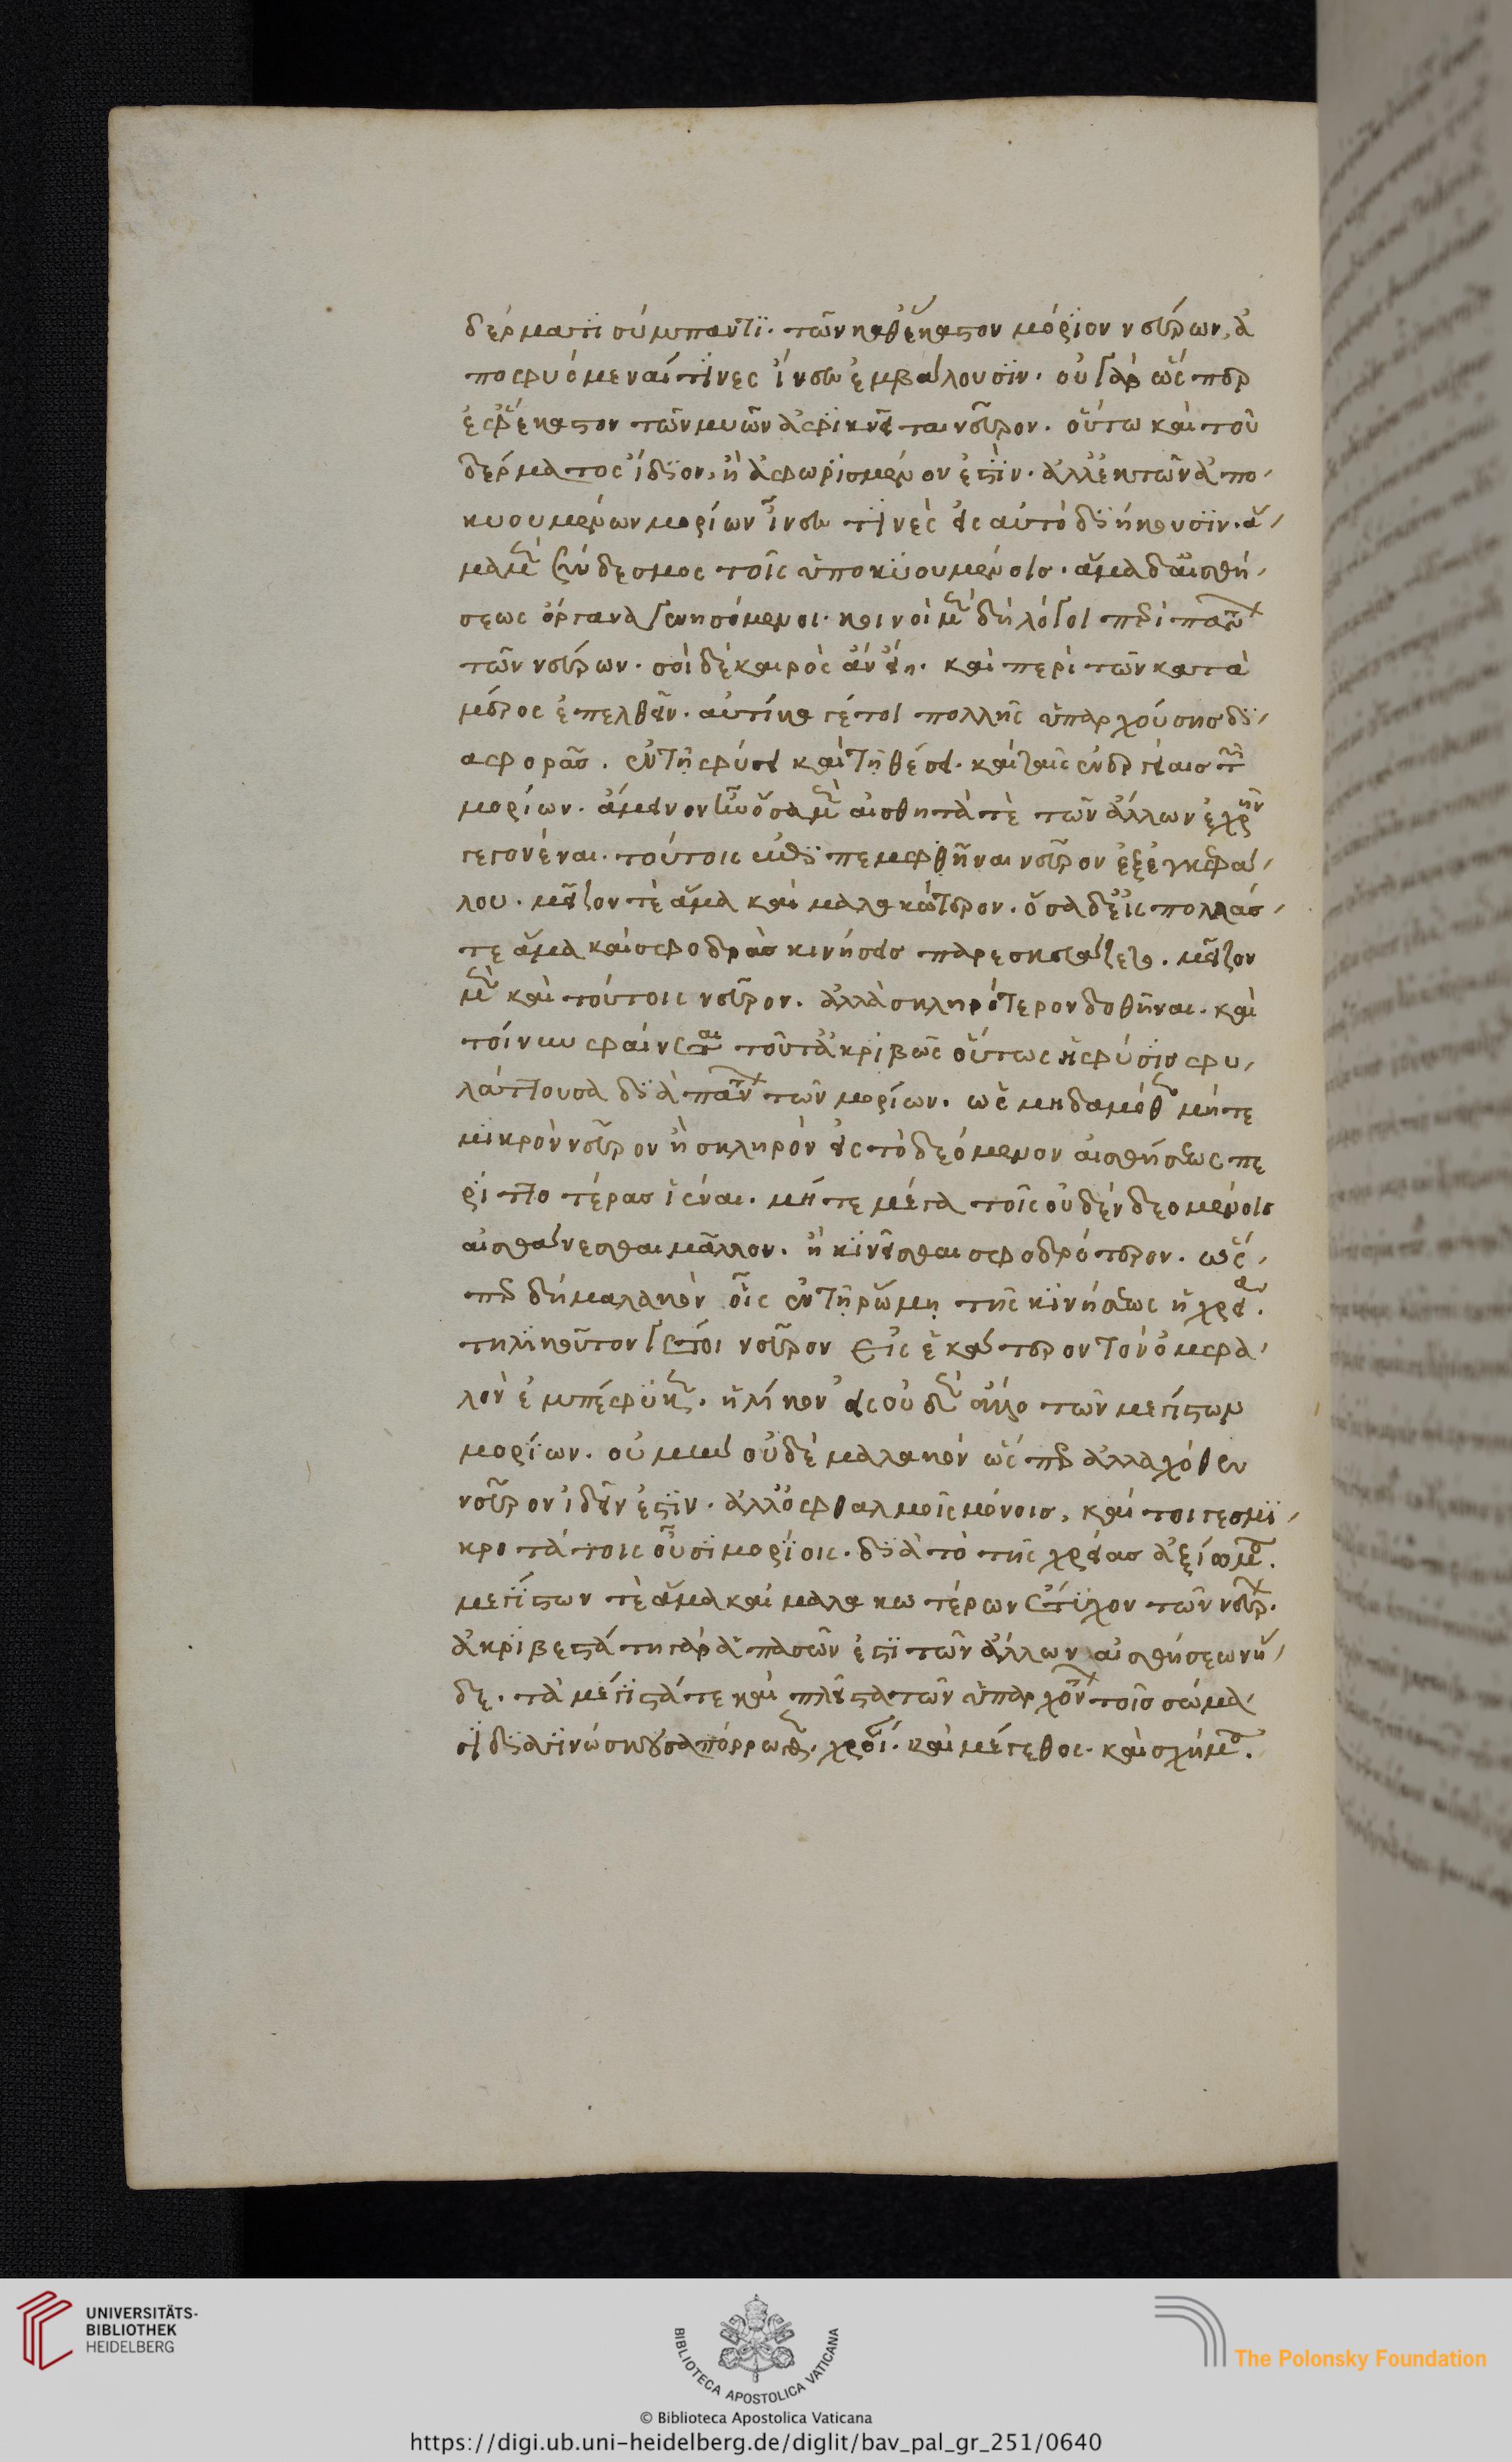 δέρματι σύμπαντι. τῶν καθ' ἕκαστον μόριον νεύρων, ἀ
ποφυόμεναί τινες ἶνες ἐμβάλουσιν. οὐ γὰρ ὥσπερ
ἐφ' ἕκαστον τῶν μυῶν ἀφικνεῖται νεῦρον. οὕτω καὶ τοῦ
δέρματος ἴδιον, ἢ ἀφωρισμένον ἐστίν. ἀλλ' ἐκ τῶν ἀπο
κυουμένων μορίων ἶνες τινὲς εἰς αὐτὸ διήκουσιν. ἅ
μα μὲν σύνδεσμος τοῖς ὑποκυουμένοις. ἅμα δ' αἰσθή
σεως ὄργανα γενησόμενοι. κοινοὶ μὲν δὴ λόγοι περὶ πάντων
τῶν νεύρων. σοὶ δὲ καιρὸς ἂν εἴη. καὶ περὶ τῶν κατὰ
μέρος ἐπελθεῖν. αὐτίκα γέ τοι πολλῆς ὑπαρχούσης δι
αφορᾶς. ἐν τῇ φύσει καὶ τῇ θέσει. καὶ ταῖς ἐνεργείαις τῶν
μορίων. ἄμεινον ἦν ὅσα μὲν αἰσθητά τε τῶν ἄλλων ἐχρῆν
γεγονέναι. τούτοις πεμφθῆναι νεῦρον ἐξ ἐγκεφά
λου. μεῖζον τὲ ἅμα καὶ μαλακώτερον. ὅσα δ' εἰς πολλάς
τε ἅμα καὶ σφοδρὰς κινήσεις παρεσκευάζετο. μεῖζον
μὲν καὶ τούτοις νεῦρον. ἀλλὰ σκληρότερον δοθῆναι. καὶ
τοίνυν φαίνεται τοῦτ' ἀκριβῶς οὕτως ἡ φύσις φυ
λάττουσα διὰ πάντων τῶν μορίων. ὡς μηδαμόθεν μήτε
μικρὸν νεῦρον ἢ σκληρὸν εἰς τὸ δεόμενον αἰσθήσεως πε
ριττοτέρας ἰέναι. μήτε μέγα τοῖς οὐδὲν δεομένοις
αἰσθάνεσθαι μᾶλλον. ἢ κινεῖσθαι σφοδρότερον. ὥς
περ δὴ μαλακὸν οἷς ἐν τῇ ῥώμῃ τῆς κινήσεως ἡ χρεία.
τηλικοῦτον γέ τοι νεῦρον εἰς ἑκάτερον τὸν ὀμφα
λὸν ἐμπέφυκεν. ἡλίκον εἰς οὐδὲν ἄλλο τῶν μεγίστων
μορίων. οὐ μὴν οὐδὲ μαλακὸν ὥσπερ ἀλλαχόθεν
νεῦρον ἰδεῖν ἐστιν. ἀλλ' ὀφθαλμοῖς μόνοις, καί τοι γε σμι
κροτάτοις οὖσι μορίοις. διὰ τὸ τῆς χρείας ἀξίωμα.
μεγίστων τὲ ἅμα καὶ μαλακωτέρων ἔτυχον τῶν νεύρων.
ἀκριβεστάτη γὰρ ἁπασῶν ἐστι τῶν ἄλλων αἰσθήσεων ἥ
δε. τὰ μέγιστά τε καὶ πλεῖστα τῶν ὑπαρχόντων τοῖς σώμα
σι διαγινώσκουσα πόρρωθεν. χρόαν. καὶ μέγεθος. καὶ σχῆμα.
UNIVERSITÄTS-
BIBLIOTHEK
HEIDELBERG
BIBLIOTECA APOSTOLICA VATICANA
The Polonsky Foundation
© Biblioteca Apostolica Vaticana
https://digi.ub.uni-heidelberg.de/diglit/bav_pal_gr_251/0640